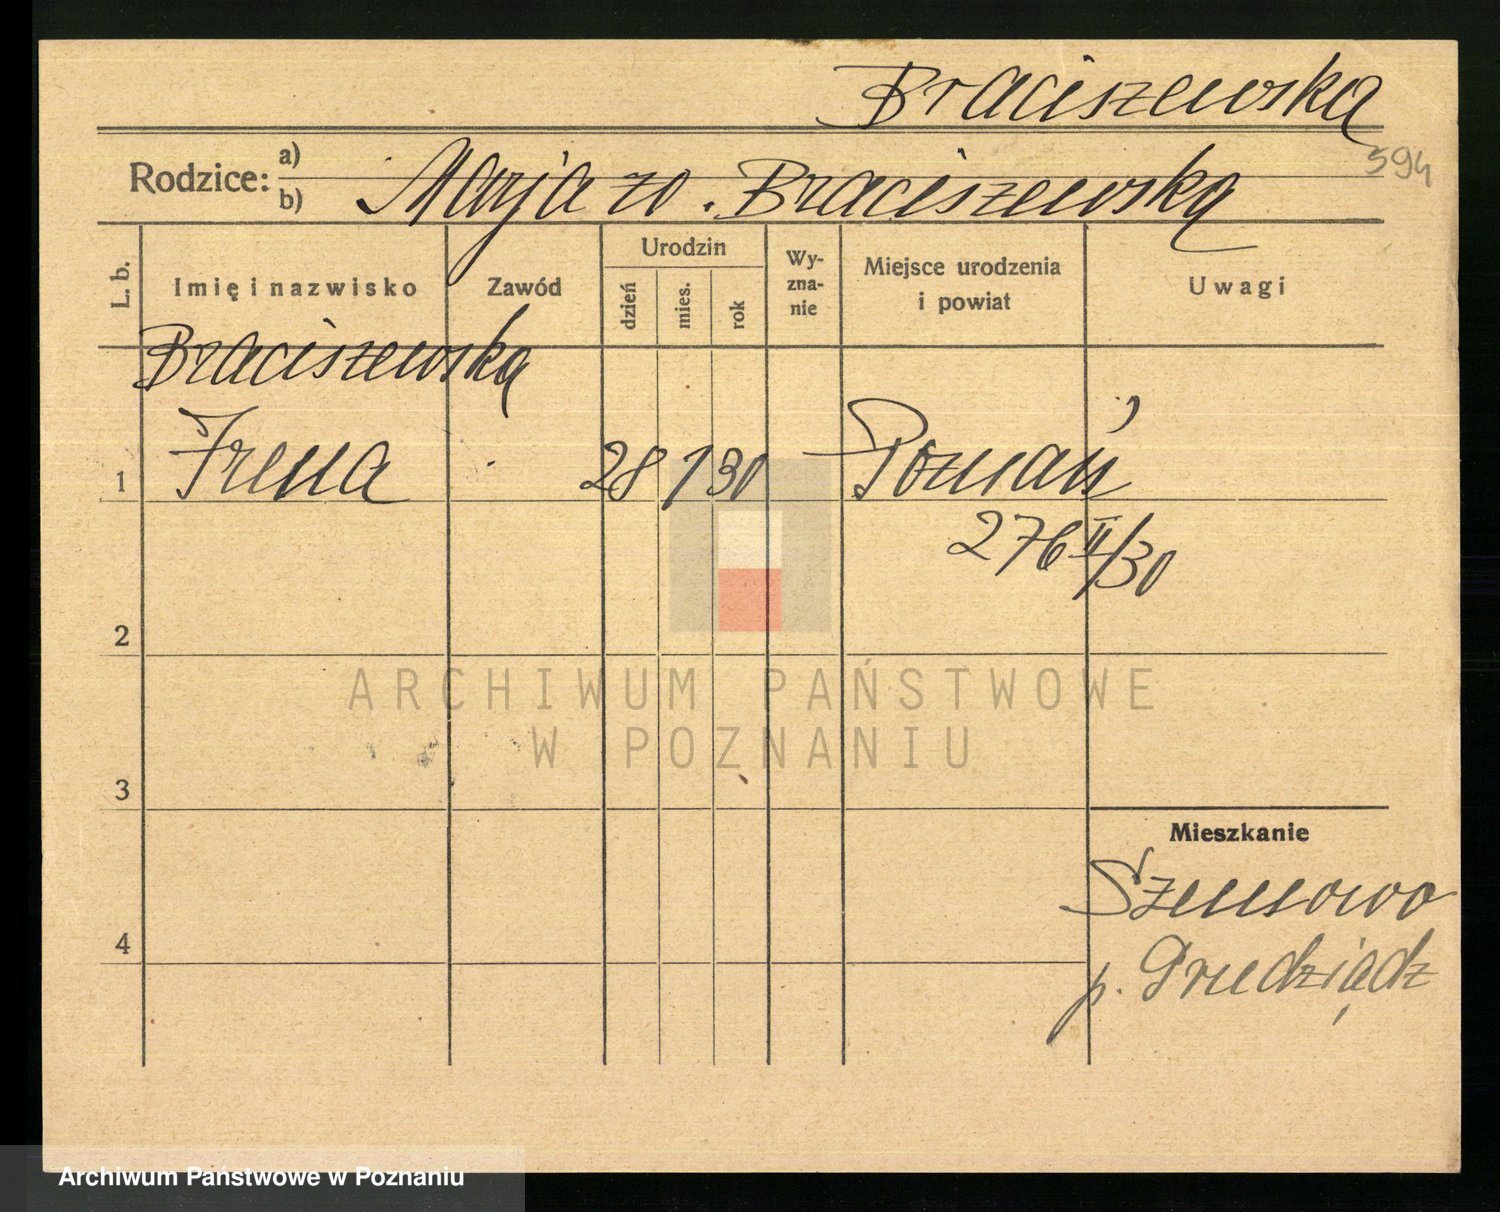 Braciszewska
594
Rodzice: a)
b) Marja zo. Braciszewska
L. b. Imię i nazwisko Zawód Urodzin dzień mies. rok Wyznanie Miejsce urodzenia i powiat Uwagi
Braciszewska
1 Irena 28 1 30 Poznań
276 II/30
2
3
Mieszkanie
4
p. Grudziądz
ARCHIWUM PAŃSTWOWE
W POZNANIU
Archiwum Państwowe w Poznaniu